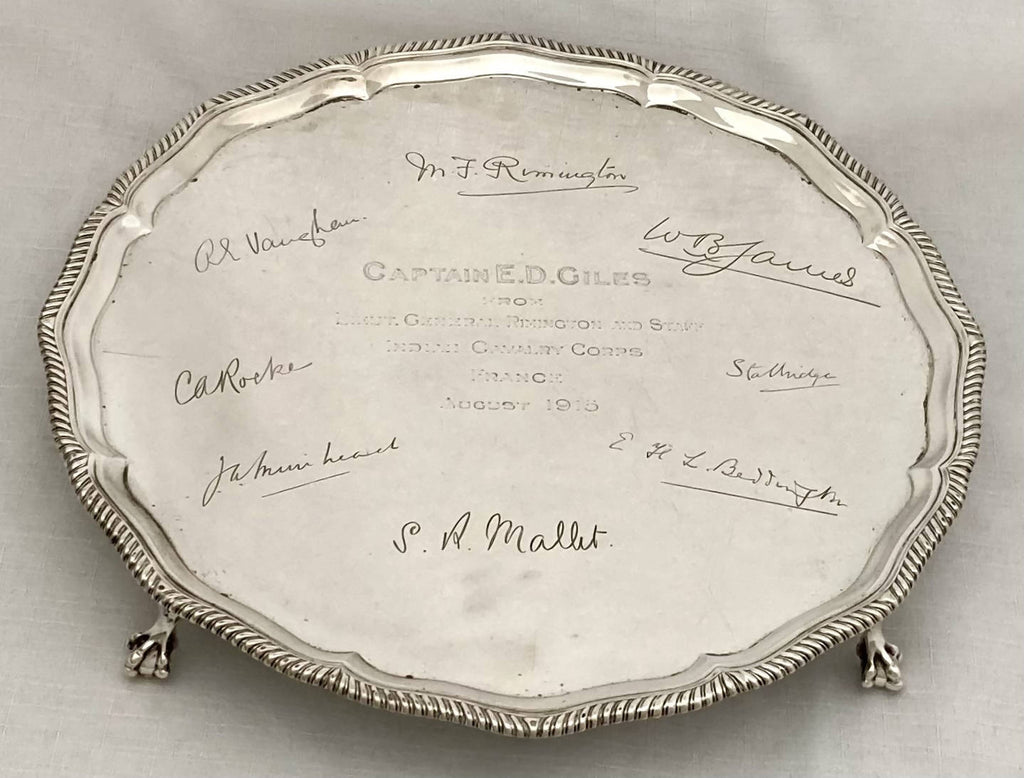 M. F. Rimington
R E Vaughan.
W B James
CAPTAIN E.D. GILES
FROM
LIEUT. GENERAL RIMINGTON AND STAFF
INDIAN CAVALRY CORPS
FRANCE
AUGUST 1915
C A Rocke
Stalbridge
J. A. Muirhead
E H L. Beddington
S. A. Mallet.